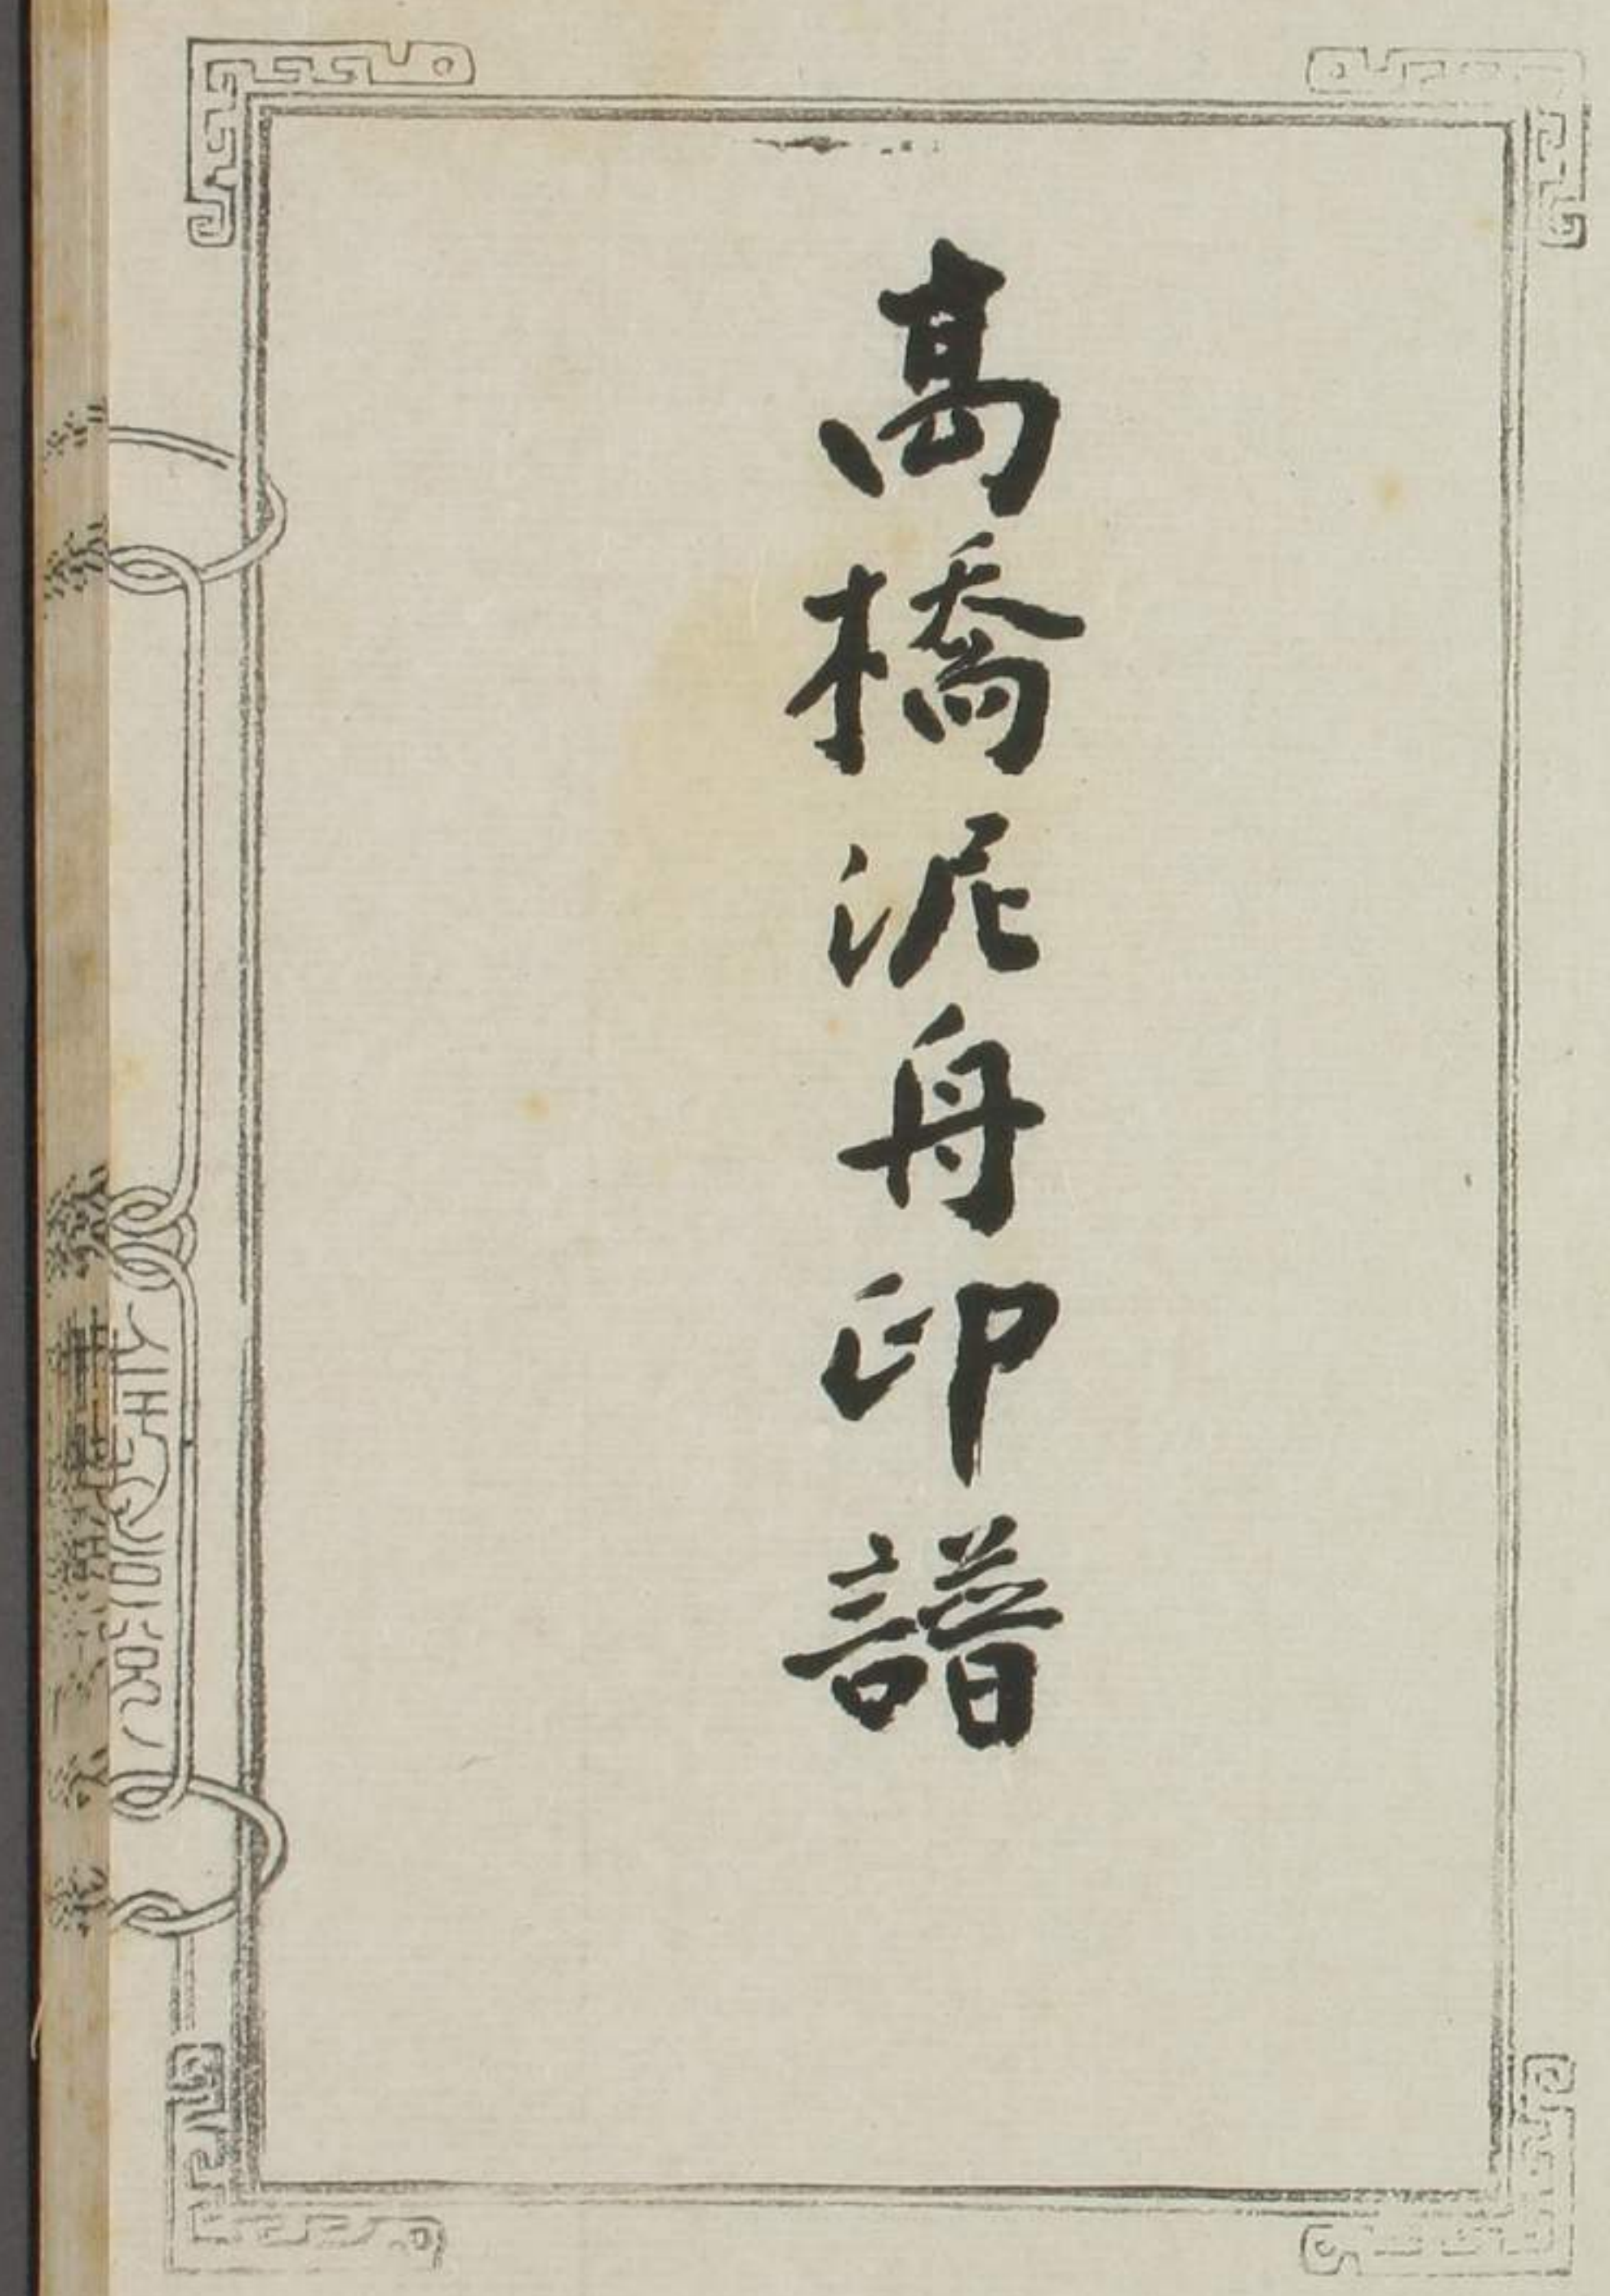 高橋泥舟印譜